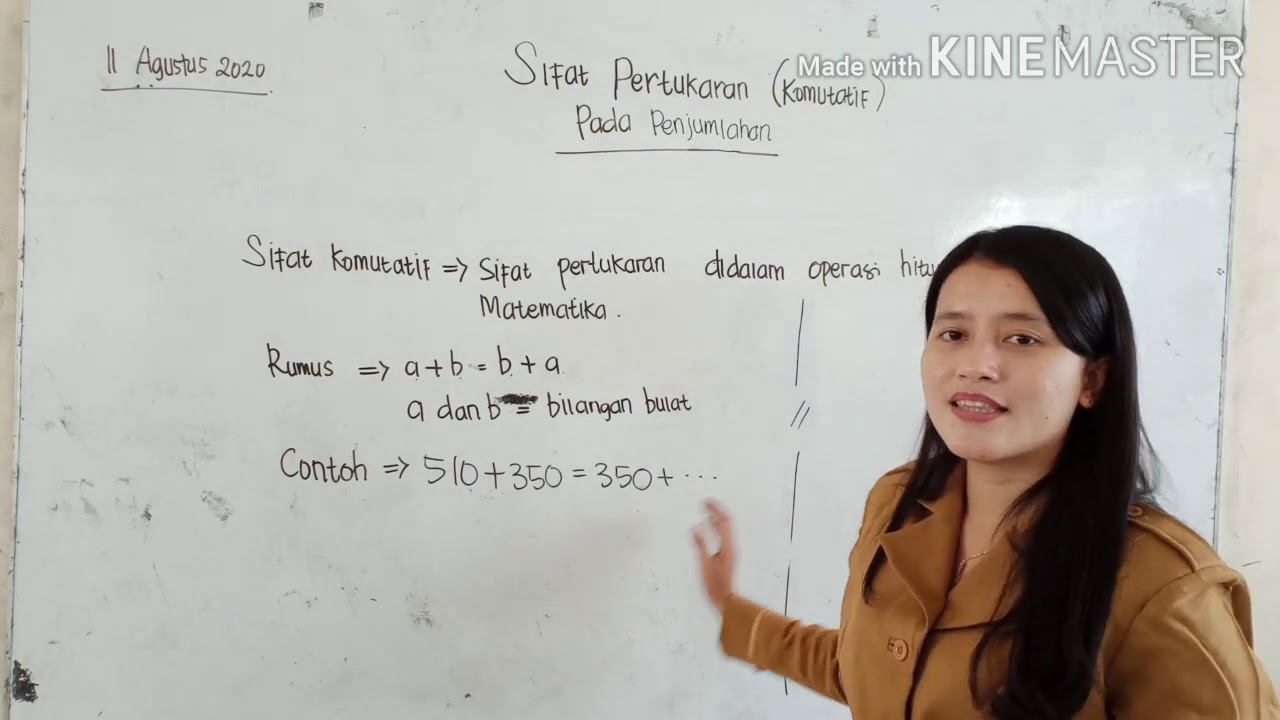 11 Agustus 2020
Made with KINEMASTER
Sifat Pertukaran (Komutatif)
Pada Penjumlahan
Sifat Komutatif => Sifat pertukaran didalam operasi
Matematika.
Rumus => a + b = b + a
a dan b = bilangan bulat
Contoh => 510 + 350 = 350 + ...